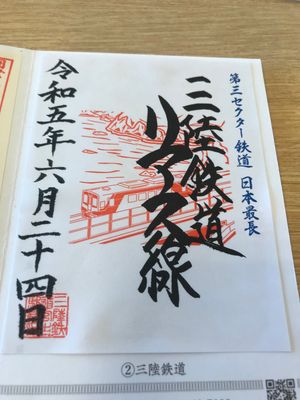 第三セクター鉄道 日本最長
三陸鉄道
リアス線
令和五年六月二十四日
②三陸鉄道